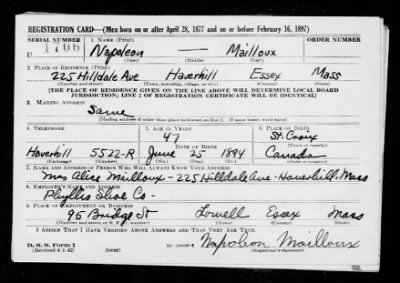 REGISTRATION CARD—(Men born on or after April 28, 1877 and on or before February 16, 1897)
SERIAL NUMBER 1. NAME (Print) ORDER NUMBER
U 1706 Napoleon — Mailloux
(First) (Middle) (Last)
2. PLACE OF RESIDENCE (Print)
225 Hilldale Ave Haverhill Essex Mass
(Number and street) (Town, township, village, or city) (County) (State)
[THE PLACE OF RESIDENCE GIVEN ON THE LINE ABOVE WILL DETERMINE LOCAL BOARD
JURISDICTION; LINE 2 OF REGISTRATION CERTIFICATE WILL BE IDENTICAL]
3. MAILING ADDRESS
Same
[Mailing address if other than place indicated on line 2. If same insert word same]
4. TELEPHONE 5. AGE IN YEARS 6. PLACE OF BIRTH
47 St. Croix
DATE OF BIRTH
Haverhill 5522-R June 25 1894 Canada
(Exchange) (Number) (Mo.) (Day) (Yr.) (State or country)
7. NAME AND ADDRESS OF PERSON WHO WILL ALWAYS KNOW YOUR ADDRESS
Mrs Alice Mailloux - 225 Hilldale Ave - Haverhill, Mass
8. EMPLOYER'S NAME AND ADDRESS
Phyllis Shoe Co -
9. PLACE OF EMPLOYMENT OR BUSINESS
95 Bridge St Lowell Essex Mass
(Number and street or R. F. D. number) (Town) (County) (State)
I AFFIRM THAT I HAVE VERIFIED ABOVE ANSWERS AND THAT THEY ARE TRUE.
Napoleon Mailloux
D. S. S. Form 1
(Revised 4-1-42) (over) (Registrant's signature)